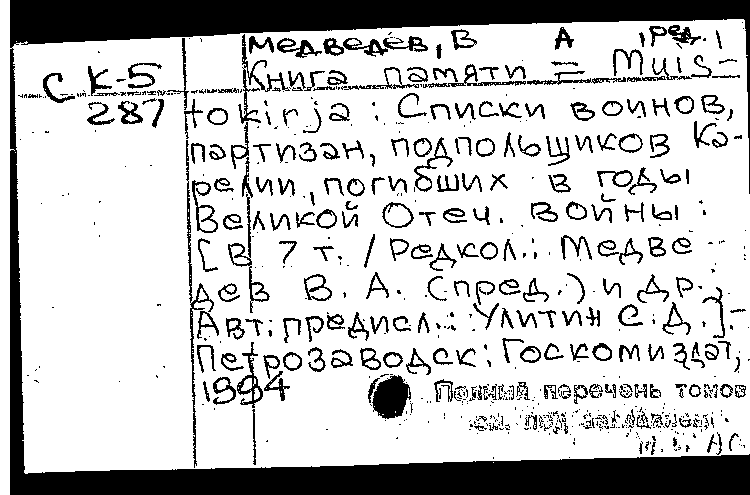 Медведев, В А , ред.,
С К-5
Книга памяти = Muis-
287
tokirja : Списки воинов,
партизан, подпольщиков Ка-
релии, погибших в годы
Великой Отеч. войны :
[В 7 т. / Редкол.: Медве
дев В. А. (пред.) и др.,
Авт. предисл.: Улитин С.Д.].-
Петрозаводск: Госкомиздат,
1994
Полный перечень томов
см. под заглавием